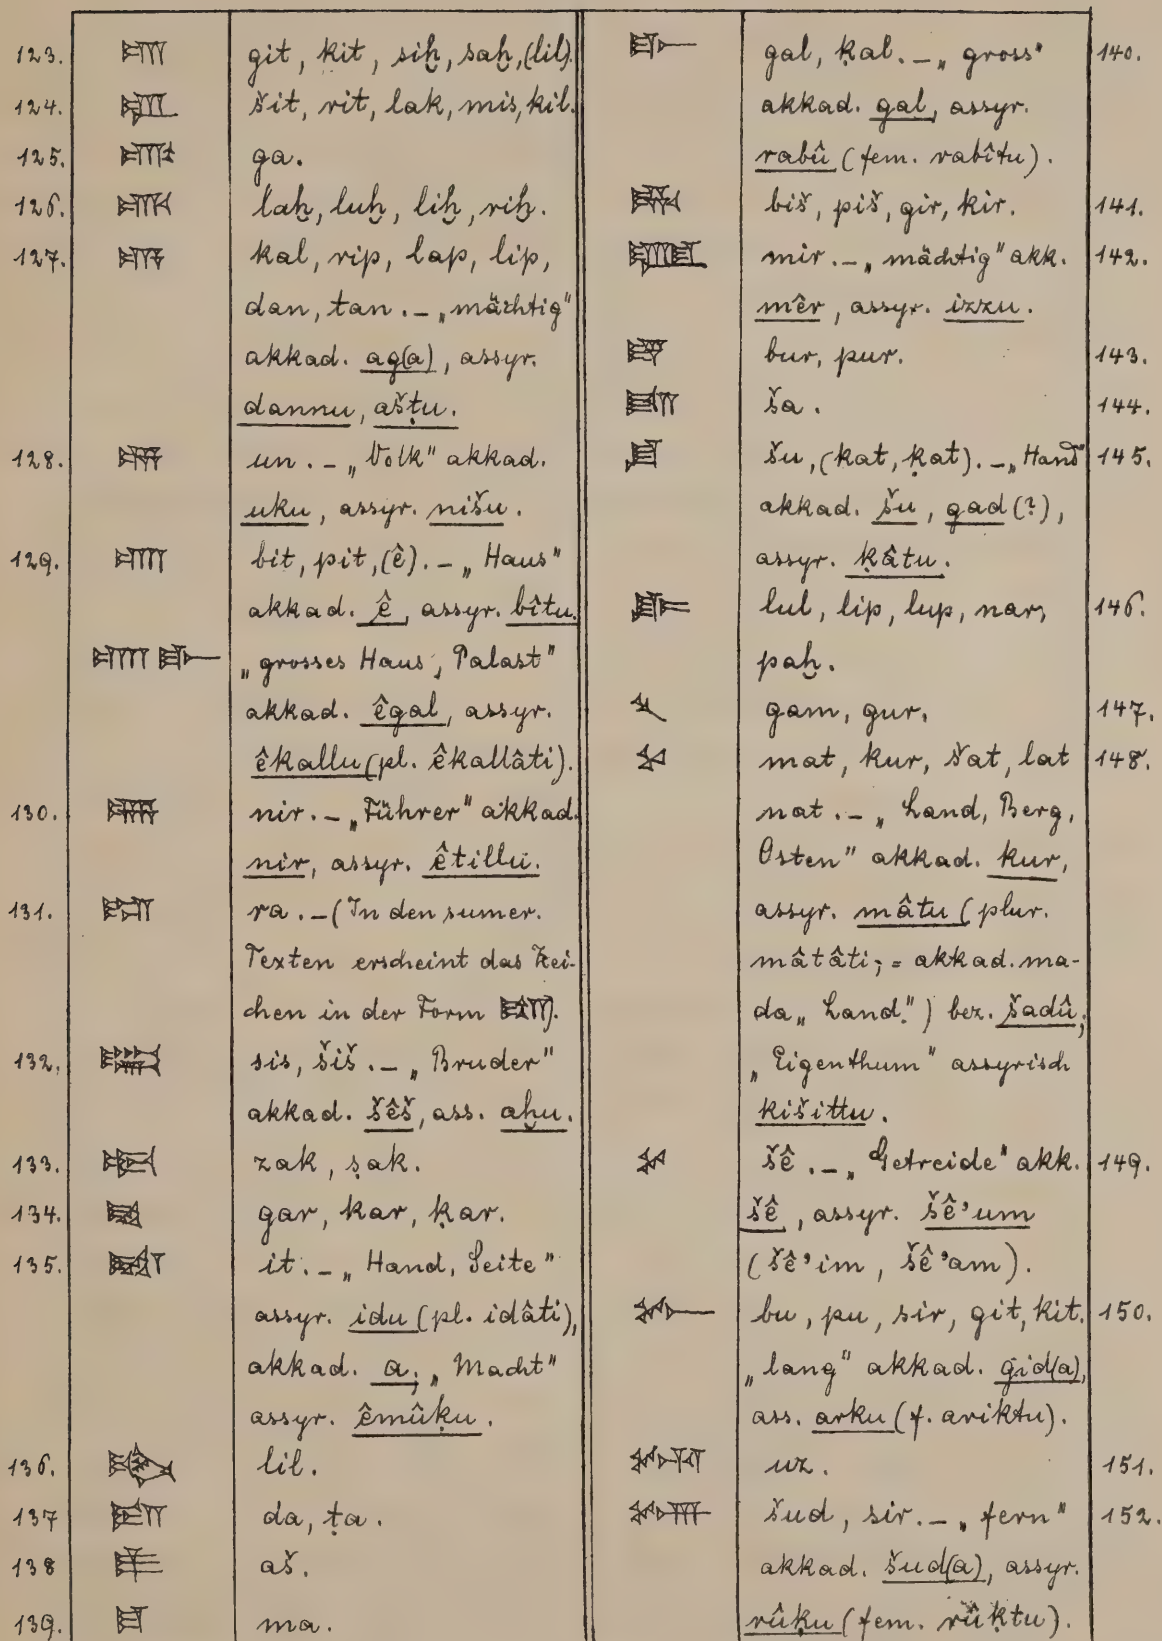 123. 𒆤 git, kit, siḫ, saḫ, (lil).
124. 𒈩 šit, rit, lak, mis, kil.
125. 𒂵 ga.
126. 𒈛 laḫ, luḫ, liḫ, riḫ.
127. 𒆗 kal, rip, lap, lip,
dan, tan. – „mächtig"
akkad. ag(a), assyr.
dannu, ašṭu.
128. 𒌦 un. – „Volk" akkad.
uku, assyr. nišu.
129. 𒂍 bit, pit, (ê). – „Haus"
akkad. ê, assyr. bîtu.
𒂍 𒃲 „grosses Haus, Palast"
akkad. êgal, assyr.
êkallu (pl. êkallâti).
130. 𒉪 nir. – „Führer" akkad.
nir, assyr. êtillu.
131. 𒊏 ra. – (In den sumer.
Texten erscheint das Zei-
chen in der Form 𒊏).
132. 𒋀 sis, šiš. – „Bruder"
akkad. šêš, ass. aḫu.
133. 𒍠 zak, ṣak.
134. 𒃼 gar, kar, ḳar.
135. 𒀉 it. – „Hand, Seite"
assyr. idu (pl. idâti),
akkad. a; „Macht"
assyr. êmûḳu.
136. 𒇸 lil.
137 𒁕 da, ṭa.
138 𒀾 aš.
139. 𒈠 ma.
𒃲 gal, ḳal. – „gross" 140.
akkad. gal, assyr.
rabû (fem. rabîtu).
𒄫 biš, piš, gir, kir. 141.
𒂆 mir. – „mächtig" akk. 142.
mêr, assyr. izzu.
𒁓 bur, pur. 143.
𒊭 ša. 144.
𒋗 šu, (kat, ḳat). – „Hand" 145.
akkad. šu, gad (?),
assyr. ḳâtu.
𒈜 lul, lip, lup, nar, 146.
paḫ.
𒃵 gam, gur. 147.
𒆳 mat, kur, šat, lat 148.
nat. – „Land, Berg,
Osten" akkad. kur,
assyr. mâtu (plur.
mâtâti; = akkad. ma-
da „Land.") bez. šadû;
„Eigenthum" assyrisch
kišittu.
𒊺 šê. – „Getreide" akk. 149.
šê, assyr. šê'um
(šê'im, šê'am).
𒁍 bu, pu, sir, git, kit. 150.
„lang" akkad. gid(a),
ass. arku (f. ariktu).
𒊻 uz. 151.
𒋤 šud, sir. – „fern" 152.
akkad. šud(a), assyr.
rûḳu (fem. rûḳtu).